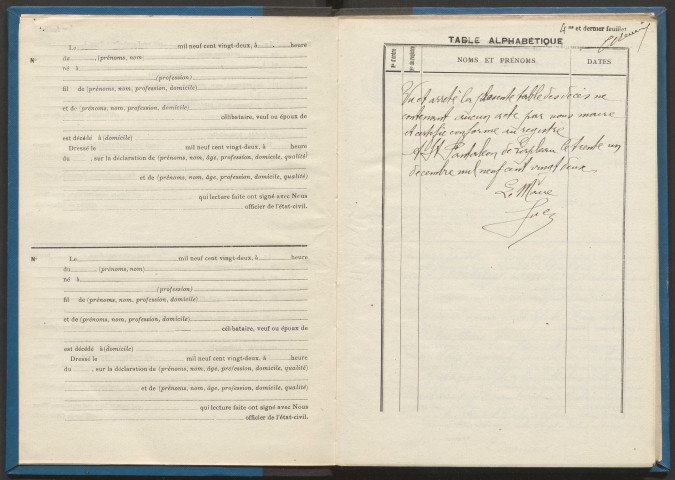 Le mil neuf cent vingt-deux, à heure
N°
du (prénoms, nom)
né à
(profession)
fil de (prénoms, nom, profession, domicile)
et de (prénoms, nom, profession, domicile)
célibataire, veuf ou époux de
est décédé à (domicile)
Dressé le mil neuf cent vingt-deux, à heure
du , sur la déclaration de (prénoms, nom, âge, profession, domicile, qualité)
et de (prénoms, nom, âge, profession, domicile, qualité)
qui lecture faite ont signé avec Nous
officier de l'état-civil.
N° Le mil neuf cent vingt-deux, à heure
du (prénoms, nom)
né à
(profession)
fil de (prénoms, nom, profession, domicile)
et de (prénoms, nom, profession, domicile)
célibataire, veuf ou époux de
est décédé à (domicile)
Dressé le mil neuf cent vingt-deux, à heure
du , sur la déclaration de (prénoms, nom, âge, profession, domicile, qualité)
et de (prénoms, nom, âge, profession, domicile, qualité)
qui lecture faite ont signé avec Nous
officier de l'état-civil.
4me et dernier feuillet
TABLE ALPHABÉTIQUE
NOMS ET PRÉNOMS
DATES
Vu et arrêté la présente table des décès ne
contenant aucun acte par nous maire
et certifié conforme au registre
A St Pantaléon de Lapleau le trente un
décembre mil neuf cent vingt deux
Le Maire